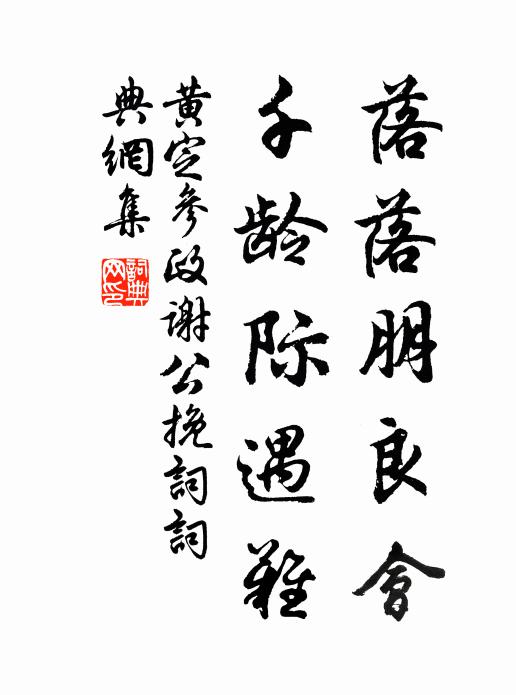 落落朋良會
千龄际遇難
黄定參政谢公挽詞詞
典網集
詞典
网印